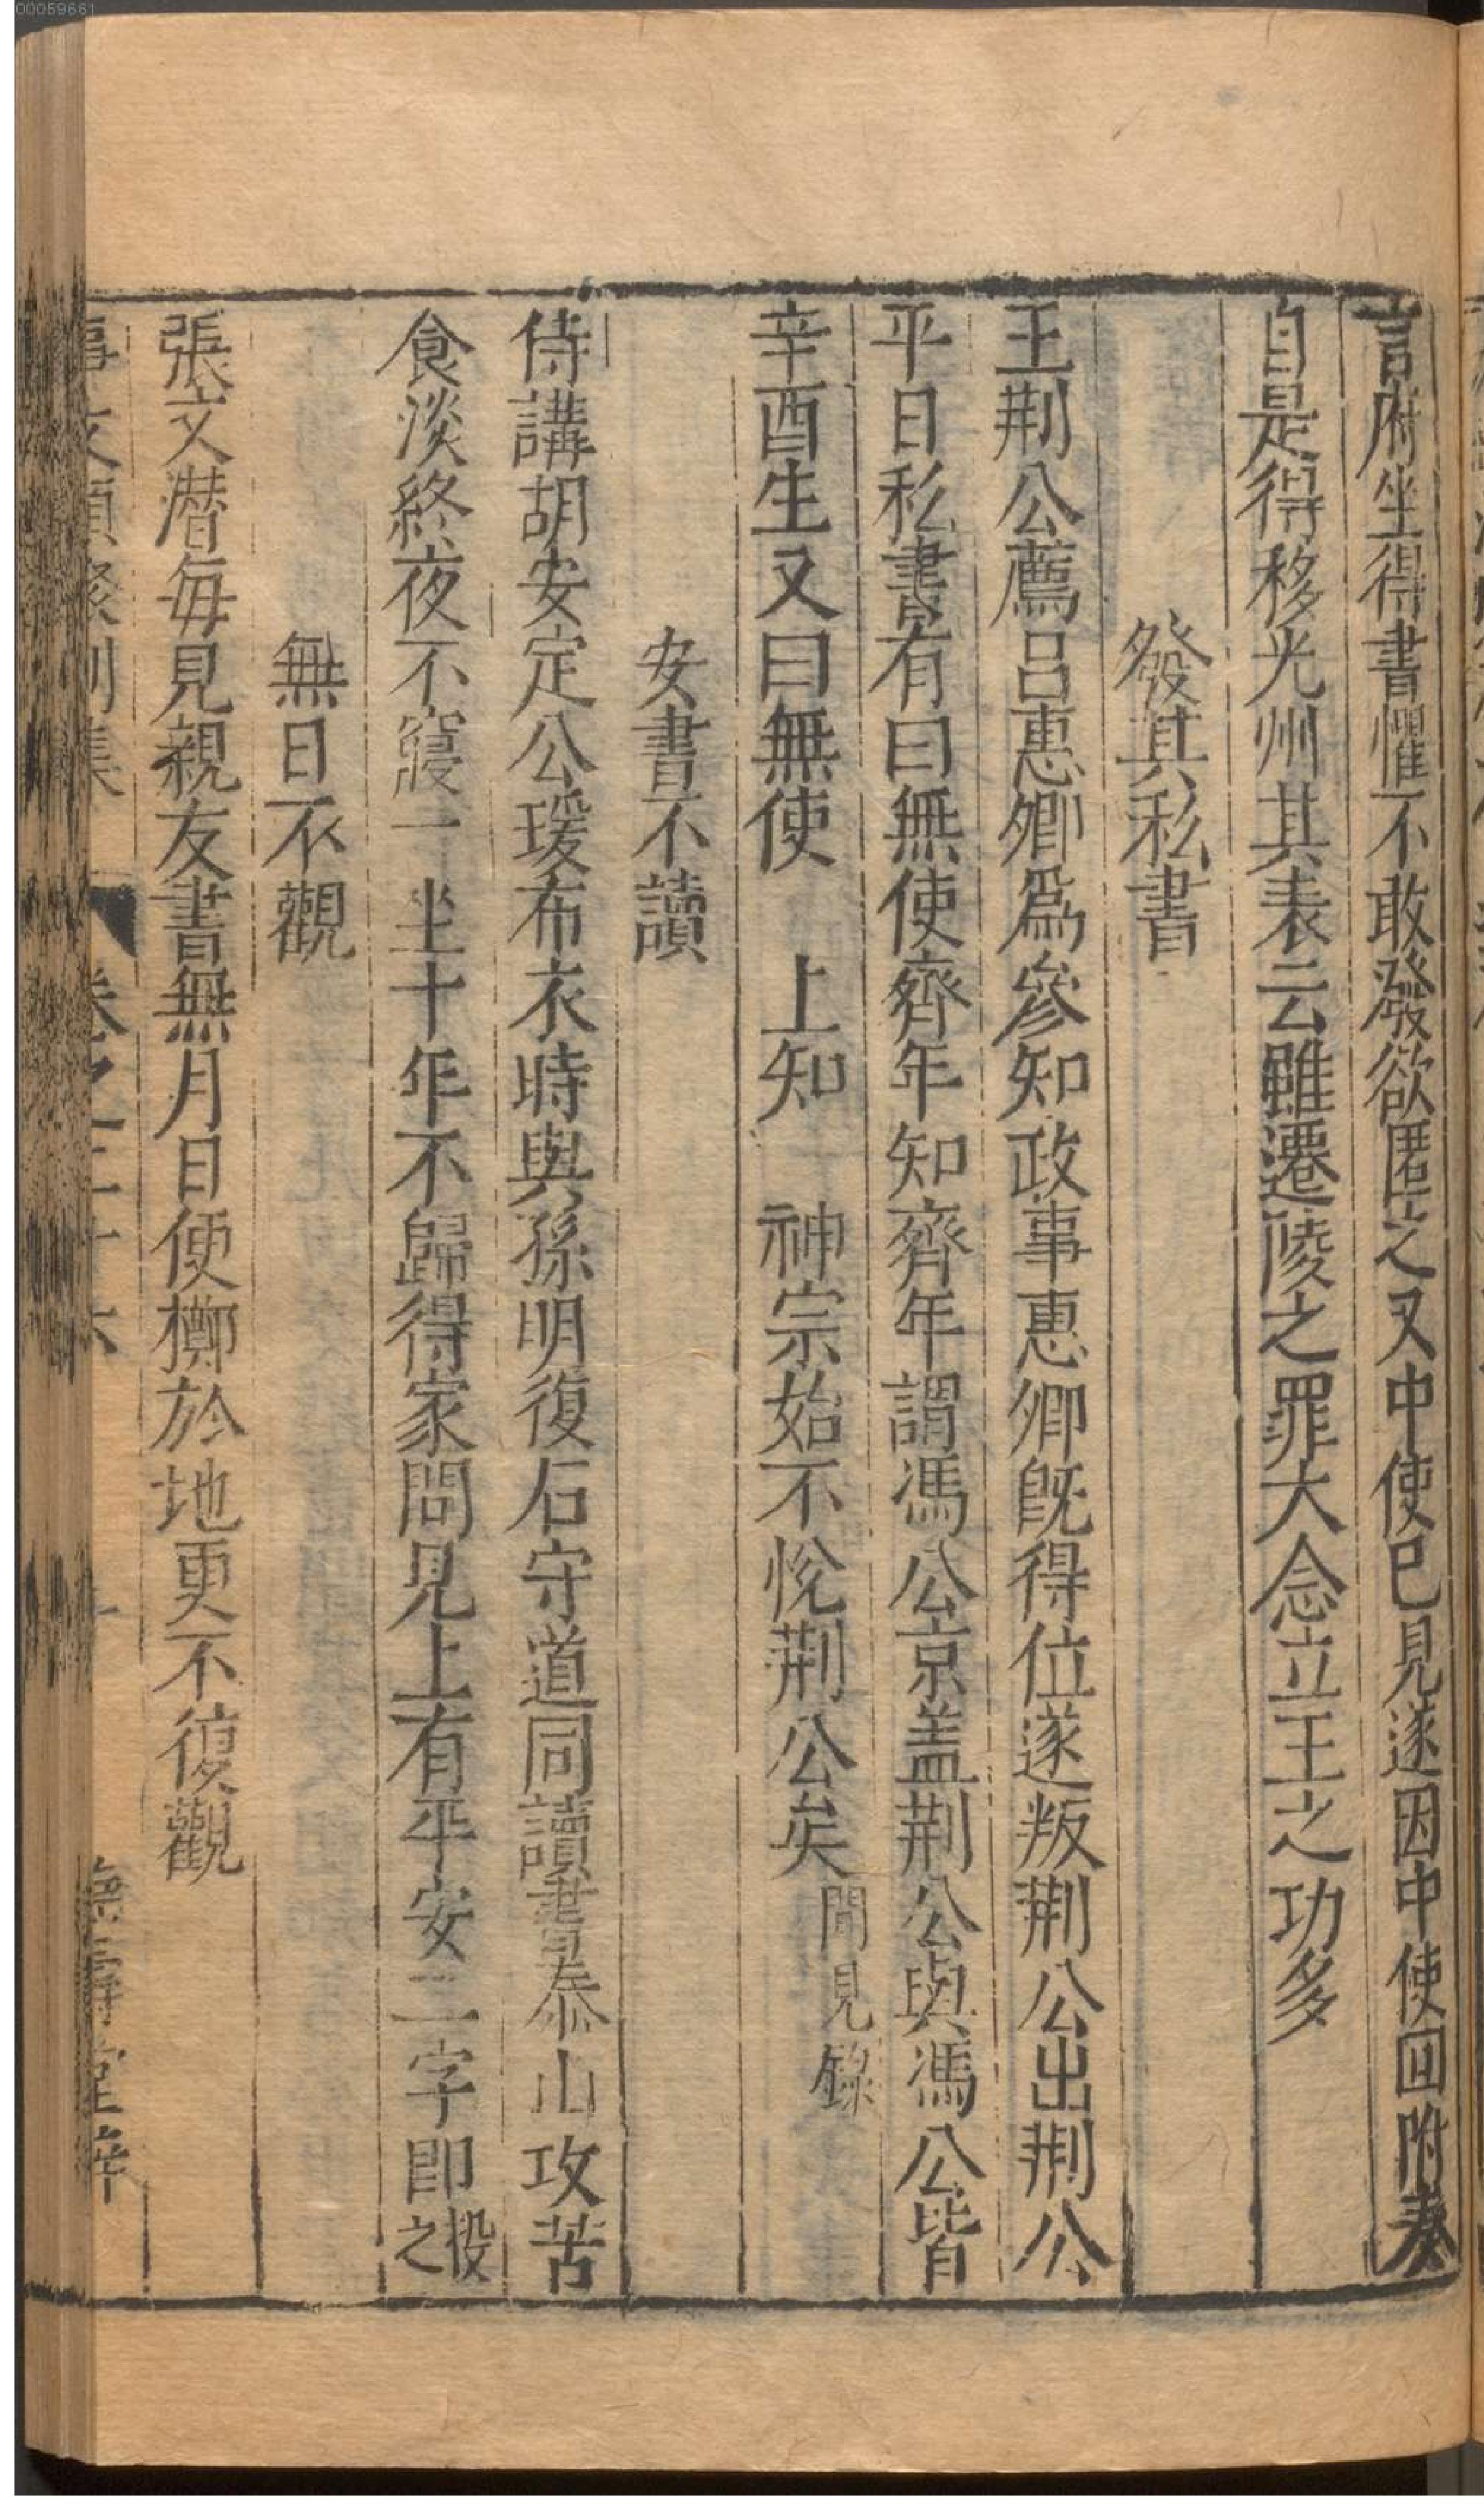 00059661
言府坐得書懼不敢發欲匿之又中使已見遂因中使回附奏
自是得移光州其表云雖遷陵之罪大念立王之功多
發其私書
王荆公薦呂惠卿爲參知政事惠卿旣得位遂叛荆公出荆公
平日私書有曰無使齊年知齊年謂馮公京盖荆公與馮公皆
辛酉生又曰無使　上知　神宗始不悅荆公矣聞見錄
安書不讀
侍講胡安定公瑗布衣時與孫明復石守道同讀書泰山攻苦
食淡終夜不寢一坐十年不歸得家問見上有平安二字即投之
無日不觀
張文潜每見親友書無月日便擲於地更不復觀
卷之二十六